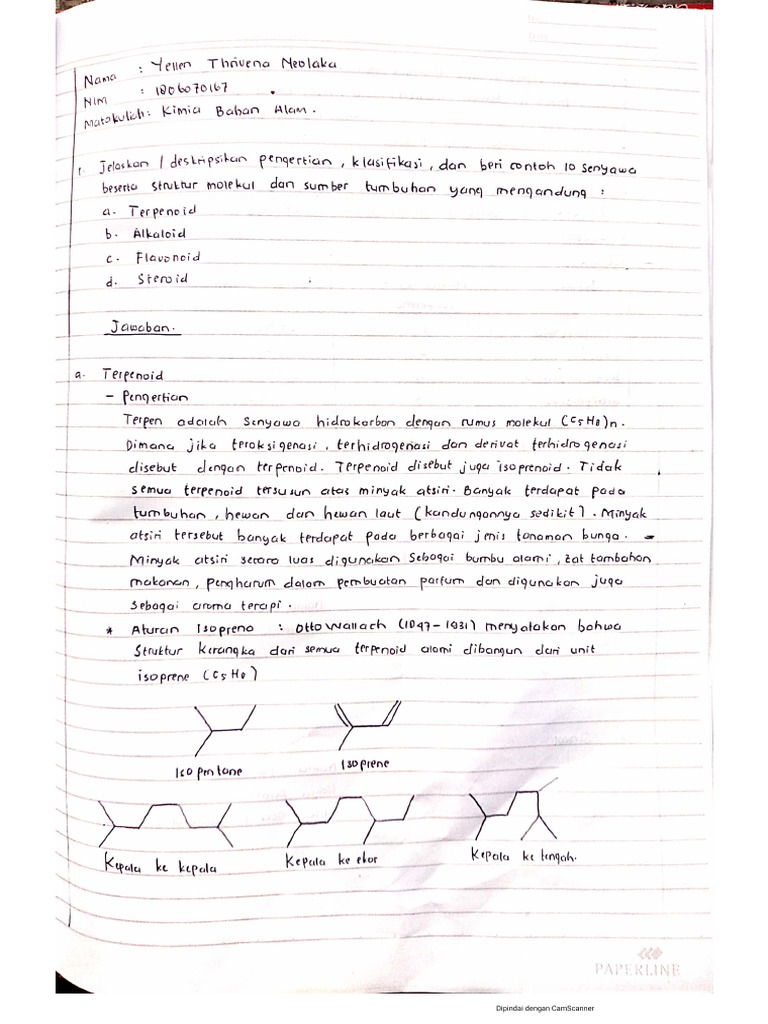 Nama : Yellen Thrivena Neolaka
NIM : 1806070167
Matakuliah : Kimia Bahan Alam.
1. Jelaskan / deskripsikan pengertian, klasifikasi, dan beri contoh 10 senyawa
beserta struktur molekul dan sumber tumbuhan yang mengandung :
a. Terpenoid
b. Alkaloid
c. Flavonoid
d. Steroid
Jawaban.
a. Terpenoid
- Pengertian
Terpen adalah senyawa hidrokarbon dengan rumus molekul (C5H8)n.
Dimana jika teroksigenasi, terhidrogenasi dan derivat terhidrogenasi
disebut dengan terpenoid. Terpenoid disebut juga isoprenoid. Tidak
semua terpenoid tersusun atas minyak atsiri. Banyak terdapat pada
tumbuhan, hewan dan hewan laut (kandungannya sedikit). Minyak
atsiri tersebut banyak terdapat pada berbagai jenis tanaman bunga. -
Minyak atsiri secara luas digunakan sebagai bumbu alami, zat tambahan
makanan, pengharum dalam pembuatan parfum dan digunakan juga
sebagai aroma terapi.
* Aturan Isopreno : Otto Wallach (1847-1931) menyatakan bahwa
Struktur kerangka dari semua terpenoid alami dibangun dari unit
isoprene (C5H8)
Iso pentane
Isoprene
Kepala ke kepala
Kepala ke ekor
Kepala ke tengah.
PAPERLINE
Dipindai dengan CamScanner